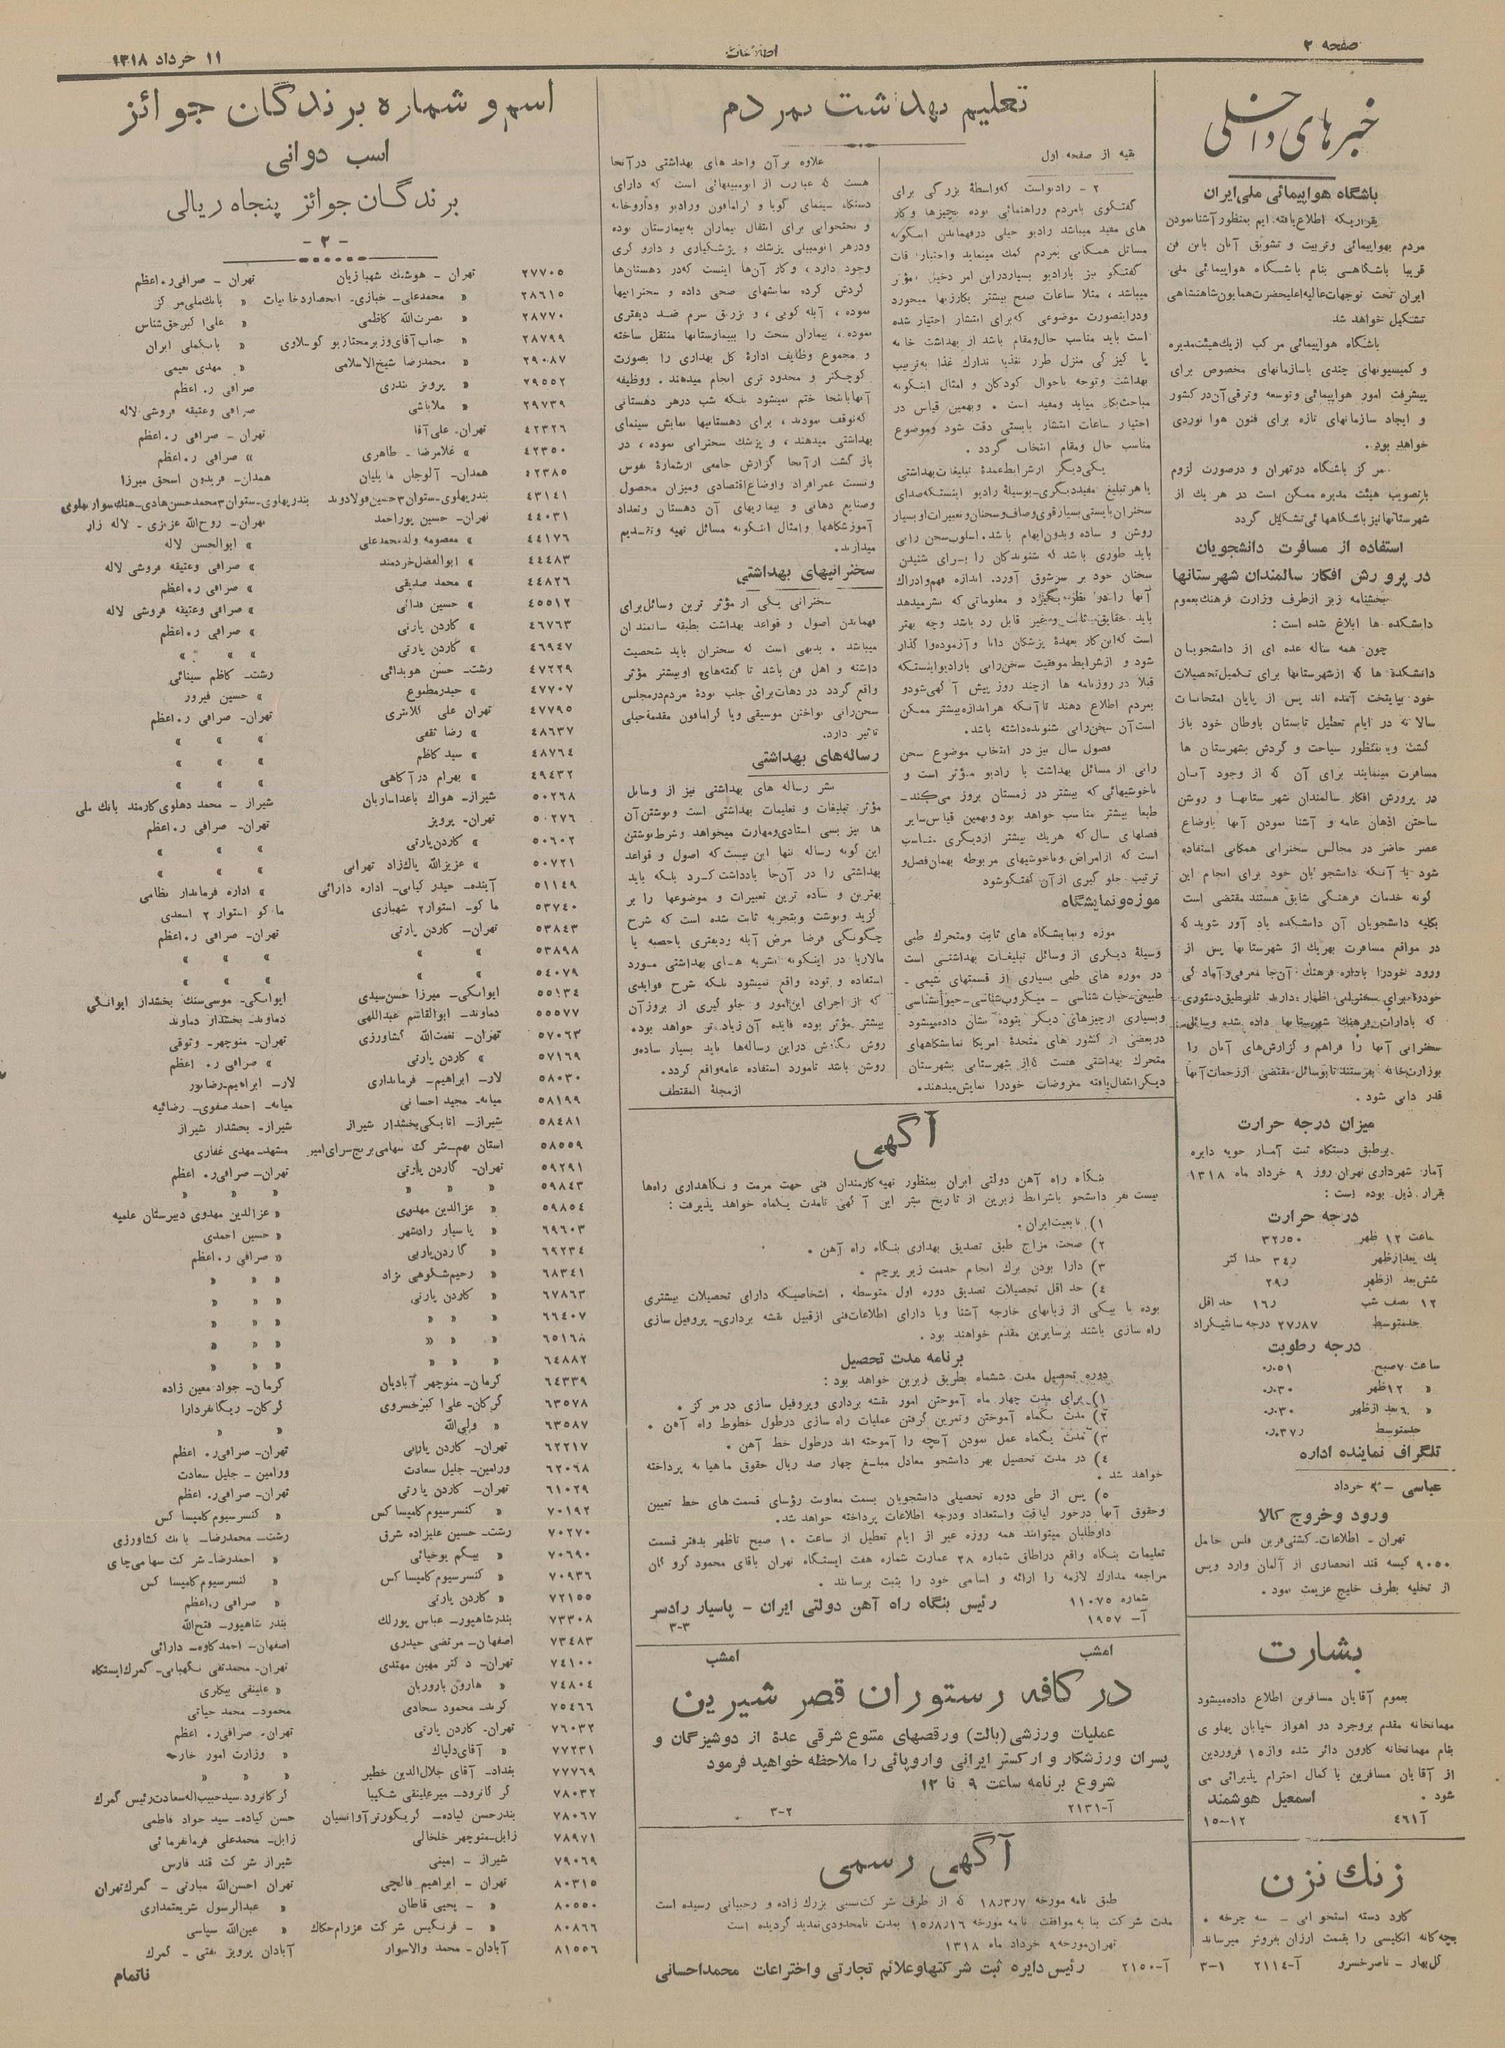 صفحه ۲
اطلاعات
۱۱ خرداد ۱۳۱۸
خبرهای داخلی
باشگاه هواپیمائی ملی ایران
بقراریکه اطلاع یافته ایم بمنظور آشنا نمودن
مردم بهواپیمائی وتربیت و تشویق آنان باین فن
قریبا باشگاهی بنام باشگاه هواپیمائی ملی
ایران تحت توجهات عالیه اعلیحضرت همایون شاهنشاهی
تشکیل خواهد شد
باشگاه هواپیمائی مرکب از یک هیئت مدیره
و کمیسیونهای چندی باسازمانهای مخصوص برای
پیشرفت امور هواپیمائی و توسعه وترقی آن در کشور
و ایجاد سازمانهای تازه برای فنون هوا نوردی
خواهد بود.
مرکز باشگاه در تهران و درصورت لزوم
باتصویب هیئت مدیره ممکن است در هر یک از
شهرستانها نیز باشگاههائی تشکیل گردد
استفاده از مسافرت دانشجویان
در پرورش افکار سالمندان شهرستانها
بخشنامه زیر از طرف وزارت فرهنگ بعموم
دانشکده ها ابلاغ شده است :
چون همه ساله عده ای از دانشجویان
دانشکده ها که از شهرستانها برای تکمیل تحصیلات
خود بپایتخت آمده اند پس از پایان امتحانات
سالانه در ایام تعطیل تابستان باوطان خود باز
گشت وبمنظور سیاحت و گردش بشهرستان ها
مسافرت مینمایند برای آن که از وجود آنان
در پرورش افکار سالمندان شهرستانها و روشن
ساختن اذهان عامه و آشنا نمودن آنها باوضاع
عصر حاضر در مجالس سخنرانی همگانی استفاده
شود با آنکه دانشجویان خود برای انجام این
گونه خدمات فرهنگی شایق هستند مقتضی است
بکلیه دانشجویان آن دانشکده یاد آور شوید که
در مواقع مسافرت بهریک از شهرستانها پس از
ورود خودرا باداره فرهنگ آن جا معرفی و آمادگی
خودرا برای سخنرانی اظهار دارند تا برطبق دستوری
که بادارات فرهنگ شهرستانها داده شده وسائل
سخنرانی آنها را فراهم و گزارش‌های آنان را
بوزارت خانه بفرستند تا بوسائل مقتضی از زحمات آنها
قدر دانی شود .
میزان درجه حرارت
برطبق دستگاه ثبت آمار جویه دایره
آمار شهرداری تهران روز ۹ خرداد ماه ۱۳۱۸
بقرار ذیل بوده است :
درجه حرارت
ساعت ۱۲ ظهر ۳۲٫۵۰
یک بعد از ظهر ۳۴ر حد اکثر
شش بعد ازظهر ۲۹ر
۱۲ نصف شب ۱۶ر حد اقل
حد متوسط ۲۷ر۸۷ درجه سانتیگراد
درجه رطوبت
ساعت ۷ صبح ۰ر۵۱
» ۱۲ ظهر ۰ر۳۰
» ۶ بعد ازظهر ۰ر۳۰
حد متوسط ۰ر۳۷
تلگراف نماینده اداره
عباسی – ۹ خرداد
ورود وخروج کالا
تهران - اطلاعات. کشتی فرین فلس حامل
۹۰۵۰ کیسه قند انحصاری از آلمان وارد وپس
از تخلیه بطرف خلیج عزیمت نمود .
بشارت
بعموم آقایان مسافرین اطلاع داده میشود
مهمانخانه مقدم بروجرد در اهواز خیابان پهلوی
بنام مهمانخانه کارون دائر شده واز ۱۵ فروردین
از آقایان مسافرین با کمال احترام پذیرائی می
شود . اسمعیل هوشمند
آ ۴۶۱ ۱۲-۱۵
زنک نزن
کارد دسته استخوانی - سه چرخه .
بچه گانه انگلیسی را بقیمت ارزان بفروش میرساند
گل بهار - ناصرخسرو آ-۲۱۱۴ ۱-۳
تعلیم بهداشت بمردم
بقیه از صفحه اول
۲ - رادیو است که واسطهٔ بزرگی برای
گفتگوی بامردم وراهنمائی بوده بچیزها وکار
های مفید میباشد رادیو خیلی درفهماندن اینگونه
مسائل همگانی بمردم کمک مینماید واختیار اوقات
گفتگو نیز بارادیو بسیار در این امر دخیل و مؤثر
میباشد ، مثلا ساعات صبح بیشتر بکارزنها میخورد
ودراینصورت موضوعی که برای انتشار اختیار شده
است باید مناسب حال و مقام باشد از بهداشت خانه
یا کیزگی منزل طرز تغذیه تدارک غذا به ترتیب
بهداشت وتوجه باحوال کودکان و امثال اینگونه
مباحث بکار میاید ومفید است . وبهمین قیاس در
اختیار ساعات انتشار بایستی دقت شود وموضوع
مناسب حال ومقام انتخاب گردد.
یکی دیگر از شرایط عمدهٔ تبلیغات بهداشتی
یاهرتبلیغ مفید دیگری بوسیلهٔ رادیو اینستکه صدای
سخنران بایستی بسیار قوی وصاف وسخنان وتعبیرات او بسیار
روشن و ساده وبدون ابهام باشد. اسلوب سخن رانی
باید طوری باشد که شنوندگان را برای شنیدن
سخنان خود بر سرشوق آورد. اندازه فهم وادراک
آنها را در نظر بگیرد و معلوماتی که نشر میدهد
باید حقایق ثابت وغیر قابل رد باشد وچه بهتر
است که این کار بعهدهٔ پزشکان دانا و آزموده واگذار
شود و از شرایط موفقیت سخن رانی بارادیو اینستکه
قبلا در روزنامه ها از چند روز پیش آگهی شود و
بمردم اطلاع دهند تا آنکه هراندازه بیشتر ممکن
است آن سخن رانی شنونده داشته باشد.
فصول سال نیز در انتخاب موضوع سخن
رانی از مسائل بهداشت با رادیو مؤثر است و
ناخوشیهائی که بیشتر در زمستان بروز می کند
طبعا بیشتر مناسب خواهد بود وبهمین قیاس سایر
فصلهای سال که هریک بیشتر از دیگری مناسب
است که از امراض وناخوشیهای مربوطه بهمان فصل و
ترتیب جلو گیری از آن گفتگو شود
موزه و نمایشگاه
موزه ونمایشگاه های ثابت ومتحرک طبی
وسیلهٔ دیگری از وسائل تبلیغات بهداشتی است
در موزه های طبی بسیاری از قسمتهای شیمی -
طبیعی - حیات شناسی - میکروب شناسی - حیوان شناسی
وبسیاری از چیزهای دیگر بتوده نشان داده میشود
دربعضی از کشور های متحدهٔ امریکا نمایشگاههای
متحرک بهداشتی هست که از شهرستانی بشهرستان
دیگر انتقال یافته معروضات خودرا نمایش میدهند.
علاوه برآن واحد های بهداشتی درآنجا
هست که عبارت از اتومبیلهائی است که دارای
دستگاه سینمای گویا و گرامافون ورادیو وداروخانه
و تختخوابی برای انتقال بیماران به بیمارستان بوده
ودرهر اتومبیلی پزشک و پزشکیاری و داروگری
وجود دارد، وکار آن‌ها اینست که در دهستان‌ها
گردش کرده نمایشهای صحی داده و سخنرانیها
نموده ، آبله کوبی ، و تزریق سرم ضد دیفتری
نموده، بیماران سخت را ببیمارستانها منتقل ساخته
و مجموع وظایف ادارهٔ کل بهداری را بصورت
کوچکتر و محدود تری انجام میدهند. ووظیفه
آنها باینجا ختم نمیشود بلکه شب درهر دهستانی
که توقف نمودند ، برای دهستانیها نمایش سینمای
بهداشتی میدهند ، و پزشک سخنرانی نموده ، در
باز گشت از آنجا گزارش جامعی ازشمارهٔ نفوس
ونسبت عمر افراد واوضاع اقتصادی ومیزان محصول
وصنایع دهاتی و بیماریهای آن دهستان وتعداد
آموزشگاهها وامثال اینگونه مسائل تهیه وتقدیم
میدارند.
سخنرانیهای بهداشتی
سخنرانی یکی از مؤثر ترین وسائل برای
فهماندن اصول و قواعد بهداشت بطبقه سالمندان
میباشد . بدیهی است که سخنران باید شخصیت
داشته و اهل فن باشد تا گفته‌های او بیشتر مؤثر
واقع گردد در دهات برای جلب تودهٔ مردم در مجلس
سخن رانی نواختن موسیقی ویا گرامافون مقدمهٔ خیلی
تاثیر دارد.
رساله‌های بهداشتی
نشر رساله های بهداشتی نیز از وسایل
مؤثر تبلیغات و تعلیمات بهداشتی است ونوشتن آن
ها نیز بسی استادی ومهارت میخواهد و شرط نوشتن
این گونه رساله تنها این نیست که اصول و قواعد
بهداشتی را در آن جا یادداشت کرد بلکه باید
بهترین و ساده ترین تعبیرات و موضوعها را بر
گزید ونوشت وبتجربه ثابت شده است که شرح
چگونگی فرضا مرض آبله ودیفتری یا حصبه یا
مالاریا در اینگونه نشریه های بهداشتی مورد
استفاده و توده واقع نمیشود بلکه شرح فوایدی
که از اجرای این امور و جلو گیری از بروز آن
بیشتر مؤثر بوده فایده آن زیادتر خواهد بود.
روش نگارش دراین رساله‌ها باید بسیار ساده و
روشن باشد تا مورد استفاده عامه واقع گردد.
از مجلهٔ المقتطف
آگهی
بنگاه راه آهن دولتی ایران بمنظور تهیه کارمندان فنی جهت مرمت و نگاهداری راه‌ها
بیست نفر دانشجو باشرایط زیرین از تاریخ نشر این آگهی تا مدت یکماه خواهد پذیرفت :
۱) تابعیت ایران .
۲) صحت مزاج طبق تصدیق بهداری بنگاه راه آهن .
۳) دارا بودن برگ انجام خدمت زیر پرچم .
۴) حد اقل تحصیلات تصدیق دوره اول متوسطه . اشخاصیکه دارای تحصیلات بیشتری
بوده یا بیکی از زبانهای خارجه آشنا ویا دارای اطلاعات فنی از قبیل نقشه برداری- پروفیل سازی
راه سازی باشند برسایرین مقدم خواهند بود .
برنامه مدت تحصیل
دوره تحصیل مدت ششماه بطریق زیرین خواهد بود :
۱) برای مدت چهار ماه آموختن امور نقشه برداری وپروفیل سازی در مرکز .
۲) مدت یکماه آموختن وتمرین گرفتن عملیات راه سازی درطول خطوط راه آهن .
۳) مدت یکماه عمل نمودن آنچه را آموخته اند درطول خط آهن .
۴) در مدت تحصیل بهر دانشجو معادل مبلغ چهار صد ریال حقوق ماهیانه پرداخته
خواهد شد .
۵) پس از طی دوره تحصیلی دانشجویان بسمت معاونت رؤسای قسمت های خط تعیین
وحقوق آنها درخور لیاقت واستعداد ودرجه اطلاعات پرداخته خواهد شد.
داوطلبان میتوانند همه روزه غیر از ایام تعطیل از ساعت ۱۰ صبح تاظهر بدفتر قسمت
تعلیمات بنگاه واقع دراطاق شماره ۳۸ عمارت شماره هفت ایستگاه تهران باقای محمود گروگان
مراجعه مدارک لازمه را ارائه و اسامی خود را بثبت برسانند .
شماره ۱۱۰۷۵ رئیس بنگاه راه آهن دولتی ایران - پاسیار رادسر
آ- ۱۹۵۷ ۳-۳
امشب امشب
در کافه رستوران قصر شیرین
عملیات ورزشی (بالت) ورقصهای متنوع شرقی عدهٔ از دوشیزگان و
پسران ورزشکار و ارکستر ایرانی واروپائی را ملاحظه خواهید فرمود
شروع برنامه ساعت ۹ تا ۱۲
آ-۲۱۳۱ ۲-۳
آگهی رسمی
طبق نامه مورخه ۱۸٫۳٫۷ که از طرف شرکت نسبی بزرگ زاده و رحیمانی رسیده است
مدت شرکت بنا به موافقت نامه مورخه ۱۵٫۸٫۱۶ بمدت نامحدودی تمدید گردیده است
تهران مورخه ۹ خرداد ماه ۱۳۱۸
آ-۲۱۵۰ رئیس دایره ثبت شرکتها وعلائم تجارتی واختراعات محمد احسانی
اسم و شماره برندگان جوائز
اسب دوانی
برندگان جوائز پنجاه ریالی
- ۲ -
۲۷۷۰۵ تهران - هوشنگ شهبازیان تهران - صرافی ر. اعظم
۲۸۶۱۵ » محمدعلی- خبازی- انحصار دخانیات » بانک ملی مرکز
۲۸۷۷۰ » نصرت الله کاظمی » علی اکبر حق شناس
۲۸۷۹۹ » جناب آقای وزیر مختار یوگوسلاوی » بانک ملی ایران
۲۹۰۸۷ » محمدرضا شیخ الاسلامی » مهدی نعیمی
۲۹۵۵۲ » پرویز نقدری صرافی ر. اعظم
۲۹۷۳۹ » ملاباشی صرافی وعتیقه فروشی لاله
۴۲۳۲۶ تهران- علی آقا تهران - صرافی ر. اعظم
۴۲۳۵۰ » غلامرضا - طاهری » صرافی ر. اعظم
۴۲۳۸۵ همدان- آلوجان ما ئلیان همدان- فریدون اسحق میرزا
۴۳۱۴۱ بندرپهلوی- ستوان ۳ حسین فولادوند بندرپهلوی- ستوان ۳ محمدحسن هادی- هنگ سوار پهلوی
۴۴۰۳۱ تهران- حسین پوراحمد تهران- روح الله عزیزی - لاله زار
۴۴۱۷۶ » معصومه ولد محمدعلی » ابوالحسن لاله
۴۴۴۸۳ » ابوالفضل خردمند » صرافی وعتیقه فروشی لاله
۴۴۸۲۶ » محمد صدیقی » صرافی ر. اعظم
۴۵۵۱۲ » حسین فدائی » صرافی وعتیقه فروشی لاله
۴۶۷۶۳ » گاردن پارتی » صرافی ر. اعظم
۴۶۹۴۷ » گاردن پارتی » » »
۴۷۲۲۹ رشت- حسن هویدائی رشت- کاظم سینائی
۴۷۷۰۷ » حیدر مطبوع » حسین فیروز
۴۷۷۹۵ تهران علی کلانتری تهران- صرافی ر. اعظم
۴۸۶۳۷ » رضا ثقفی » » »
۴۸۷۶۴ » سید کاظم » » »
۴۹۴۳۲ » بهرام درآگاهی » » »
۵۰۲۶۸ شیراز- هواک باغداساریان شیراز - محمد دهلوی کارمند بانک ملی
۵۰۲۷۶ تهران- پرویز تهران- صرافی ر. اعظم
۵۰۶۰۲ » گاردن پارتی » » »
۵۰۷۲۱ » عزیزالله پاک زاد تهرانی » » »
۵۱۱۴۹ آبنده- حیدر کیانی- اداره دارائی » اداره فرماندار نظامی
۵۳۷۴۰ ماکو- استوار ۲ شهبازی ماکو استوار ۲ اسعدی
۵۳۸۴۳ تهران- گاردن پارتی تهران- صرافی ر. اعظم
۵۳۸۹۸ » » » » »
۵۴۰۷۹ » » » » »
۵۵۱۳۴ ایوانکی- میرزا حسن سیدی ایوانکی- موسی سنگ بخشدار ایوانکی
۵۵۵۷۷ دماوند- ابوالقاسم عبداللهی دماوند- بخشدار دماوند
۵۷۰۶۳ تهران- نعمت الله کشاورزی تهران- منوچهر- وثوقی
۵۷۱۶۹ » گاردن پارتی » صرافی ر. اعظم
۵۸۰۳۰ لار- ابراهیم- فرمانداری لار- ابراهیم- رضاپور
۵۸۱۹۹ میانه- مجید احسانی میانه- احمد صفوی- رضائیه
۵۸۴۸۱ شیراز- اتابکی بخشدار شیراز شیراز- بخشدار شیراز
۵۸۵۵۹ استان نهم- شرکت سهامی برنج سرای امیر مشهد- مهدی غفاری
۵۹۲۹۱ تهران- گاردن پارتی تهران- صرافی ر. اعظم
۵۹۸۴۳ » » » » » »
۵۹۸۵۴ » عزالدین مهدوی » عزالدین مهدوی دبیرستان علمیه
۶۹۶۰۳ » پاسیار رادشهر » حسین احمدی
۶۹۲۳۴ » گاردن پارتی » صرافی ر. اعظم
۶۸۳۴۱ » رحیم شکوهی نژاد » » »
۶۷۸۶۳ » گاردن پارتی » » »
۶۶۴۰۷ » » » » » »
۶۵۱۶۸ » » » » » »
۶۴۸۸۲ » » » » » »
۶۴۳۳۹ کرمان- منوچهر آبادیان کرمان- جواد معین زاده
۶۳۵۷۸ گرگان- علی اکبر خسروی گرگان- ریگانفردارا
۶۳۵۸۷ » ولی الله » »
۶۲۲۱۷ تهران- گاردن پارتی تهران- صرافی ر. اعظم
۶۲۰۶۸ ورامین- جلیل سعادت ورامین - جلیل سعادت
۶۱۰۲۹ تهران- گاردن پارتی تهران- صرافی ر. اعظم
۷۰۱۹۲ » کنسرسیوم کامپسا کس » کنسرسیوم کامپسا کس
۷۰۲۷۰ رشت- حسین علیزاده شرق رشت- محمدرضا- بانک کشاورزی
۷۰۶۹۰ » بیگم یوخیائی » احمدرضا- شرکت سهامی چای
۷۰۹۳۶ » کنسرسیوم کامپسا کس » کنسرسیوم کامپسا کس
۷۲۱۵۵ » گاردن پارتی » صرافی ر. اعظم
۷۳۳۰۸ بندرشاهپور- عباس پورلک بندر شاهپور- فتح الله
۷۳۴۸۳ اصفهان- مرتضی حیدری اصفهان- احمد کاوه- دارائی
۷۴۱۰۰ تهران- دکتر مهین مهتدی تهران- محمدتقی نگهبانی- گمرک ایستگاه
۷۴۸۰۴ » هارتون باروریان » علینقی بیکاری
۷۵۴۶۶ کرند- محمود سجادی محمود- محمد حیاتی
۷۶۰۳۲ تهران- گاردن پارتی تهران- صرافی ر. اعظم
۷۷۲۳۱ » آقای دلپاک » وزارت امور خارجه
۷۷۷۶۹ بغداد- آقای جلال الدین خطیر » » »
۷۸۰۳۲ گرگانرود- میرعلینقی شکیبا گرگانرود. سید حبیب اله سعادت رئیس گمرک
۷۸۰۶۷ بندر حسن کیاده- گریگور تر آوانسیان حسن کیاده- سید جواد فاطمی
۷۸۹۷۱ زابل- منوچهر خلخالی زابل- محمدعلی فرمانفرمائی
۷۹۰۶۹ شیراز - امینی شیراز شرکت قند فارس
۸۰۳۱۵ تهران - ابراهیم فالچی تهران احسن الله مبارتی - گمرک تهران
۸۰۵۵۰ » - یحیی قاطان » عبدالرسول شریعتمداری
۸۰۸۶۶ » - فرنگیس شرکت عزرام حکاک » عین الله سپاسی
۸۱۵۵۶ آبادان- محمد والاسوار آبادان پرویز نفتی - گمرک
ناتمام